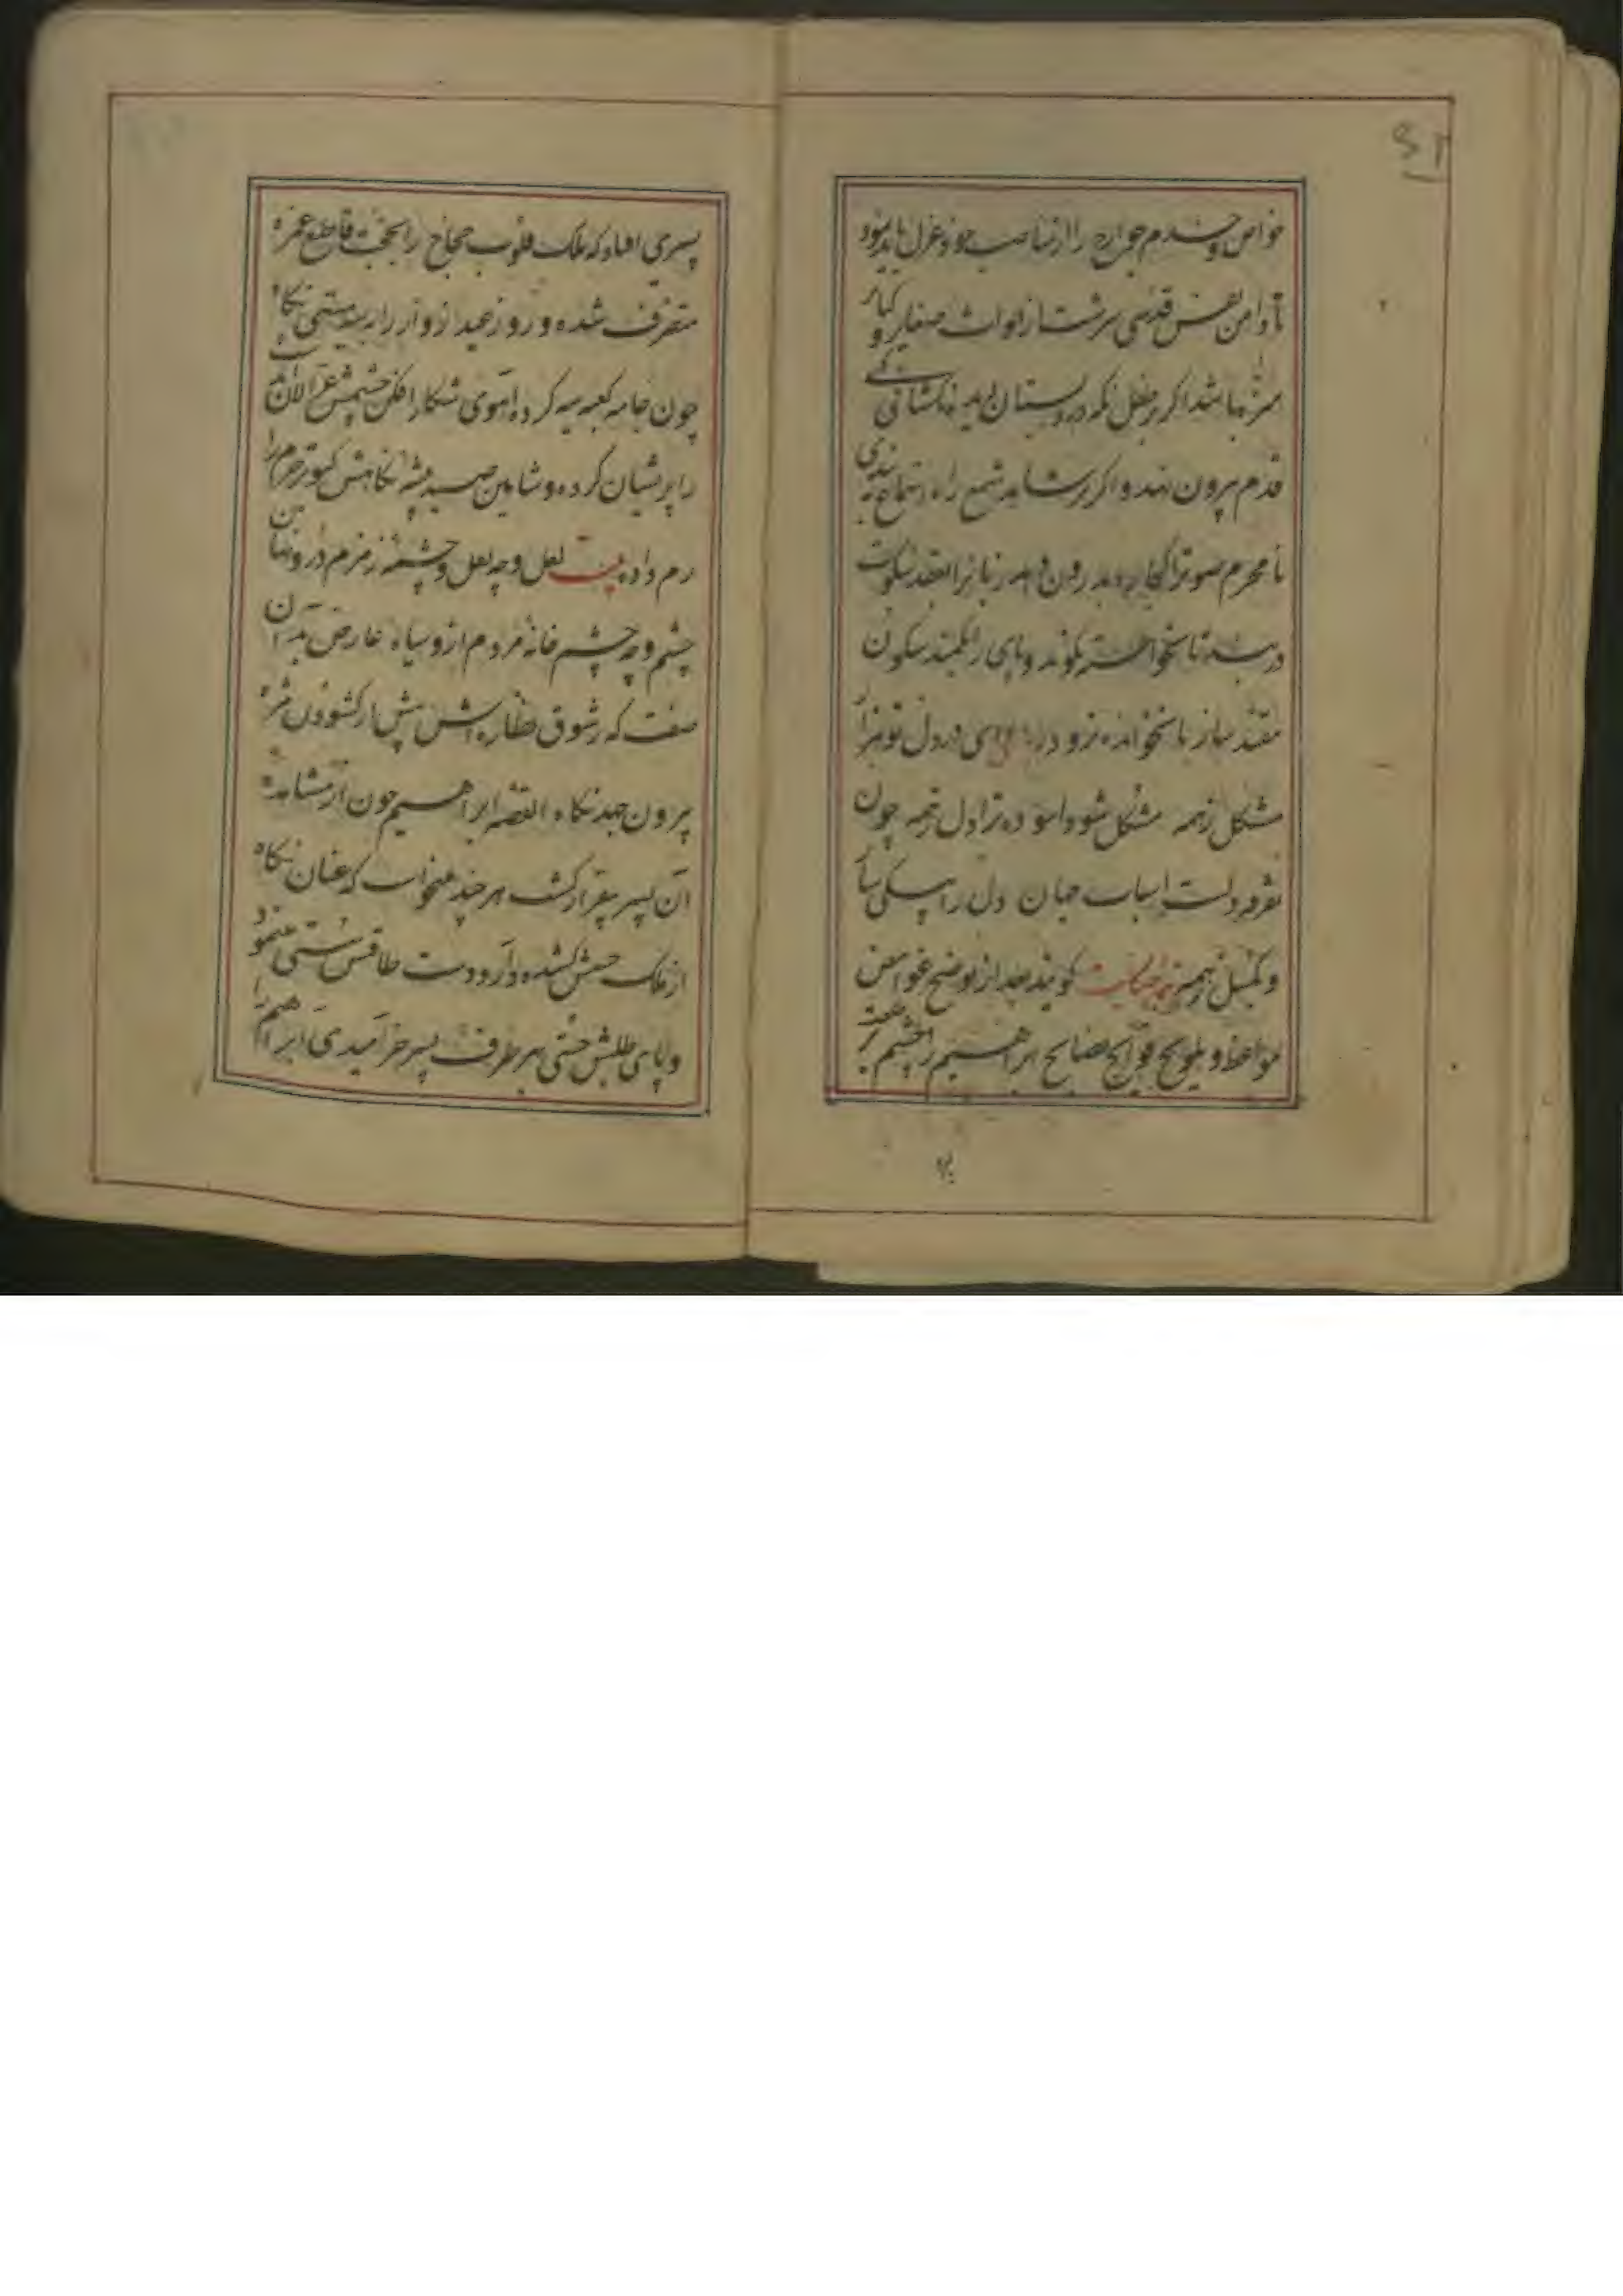 خواص و خدم جوارح را از مناصب خود عزل باید نمود
تا دامن نفس قدسی سرشت از لواث صغایر و کبایر
منزه باشد اگر طفل نکه در دبستان دیده
قدم بیرون نهد و اکر شاهد شمع راه استماع
نامحرم صوتی را بدرون دهد زبانرا بعقد سکوت
در بند تا نخواسته نکوید و پای را بکمند سکون
مقید ساز تا نخوانده نرود رباعی ای در دل تو هزار
مشکل ز همه مشکل شود آسوده ترا دل ز همه چون
تفرقه دلست اسباب جهان دل را بیکی سپار
و بکسل ز همه حکایت کویند بعد از توضیح غوامض
مواعظ و تلویح فوایح نصایح ابراهیم را چشم بر
پسری افتاد که ملک قلوب حجاج را بحجت قاطع غمزه
متصرف شده و روز عید از زوار را بسیه مستی نکاه
چون جامه کعبه سیه کرده آهوی شکار افکن چشمش غزالان
را پریشان کرده و شاهین صید پیشه نکاهش کبوتر حرم را
رم داده بیت لعل و چه لعل و چشمه زمزم درو نهان
چشم و چه چشم خانه مردم ازو سیاه عارض بدان
صفت که ز شوق نظاره اش پیش از کشودن مژه
بیرون جهد نکاه القصه ابراهیم چون از مشاهده
آن پسر بیقرار کشت هر چند میخواست که عنان نکاه
از ملک حسنش کشیده دارد دست طاقتش سستی مینمود
و پای طلبش چستی بهر طرف پسر خرامیدی ابراهیم را